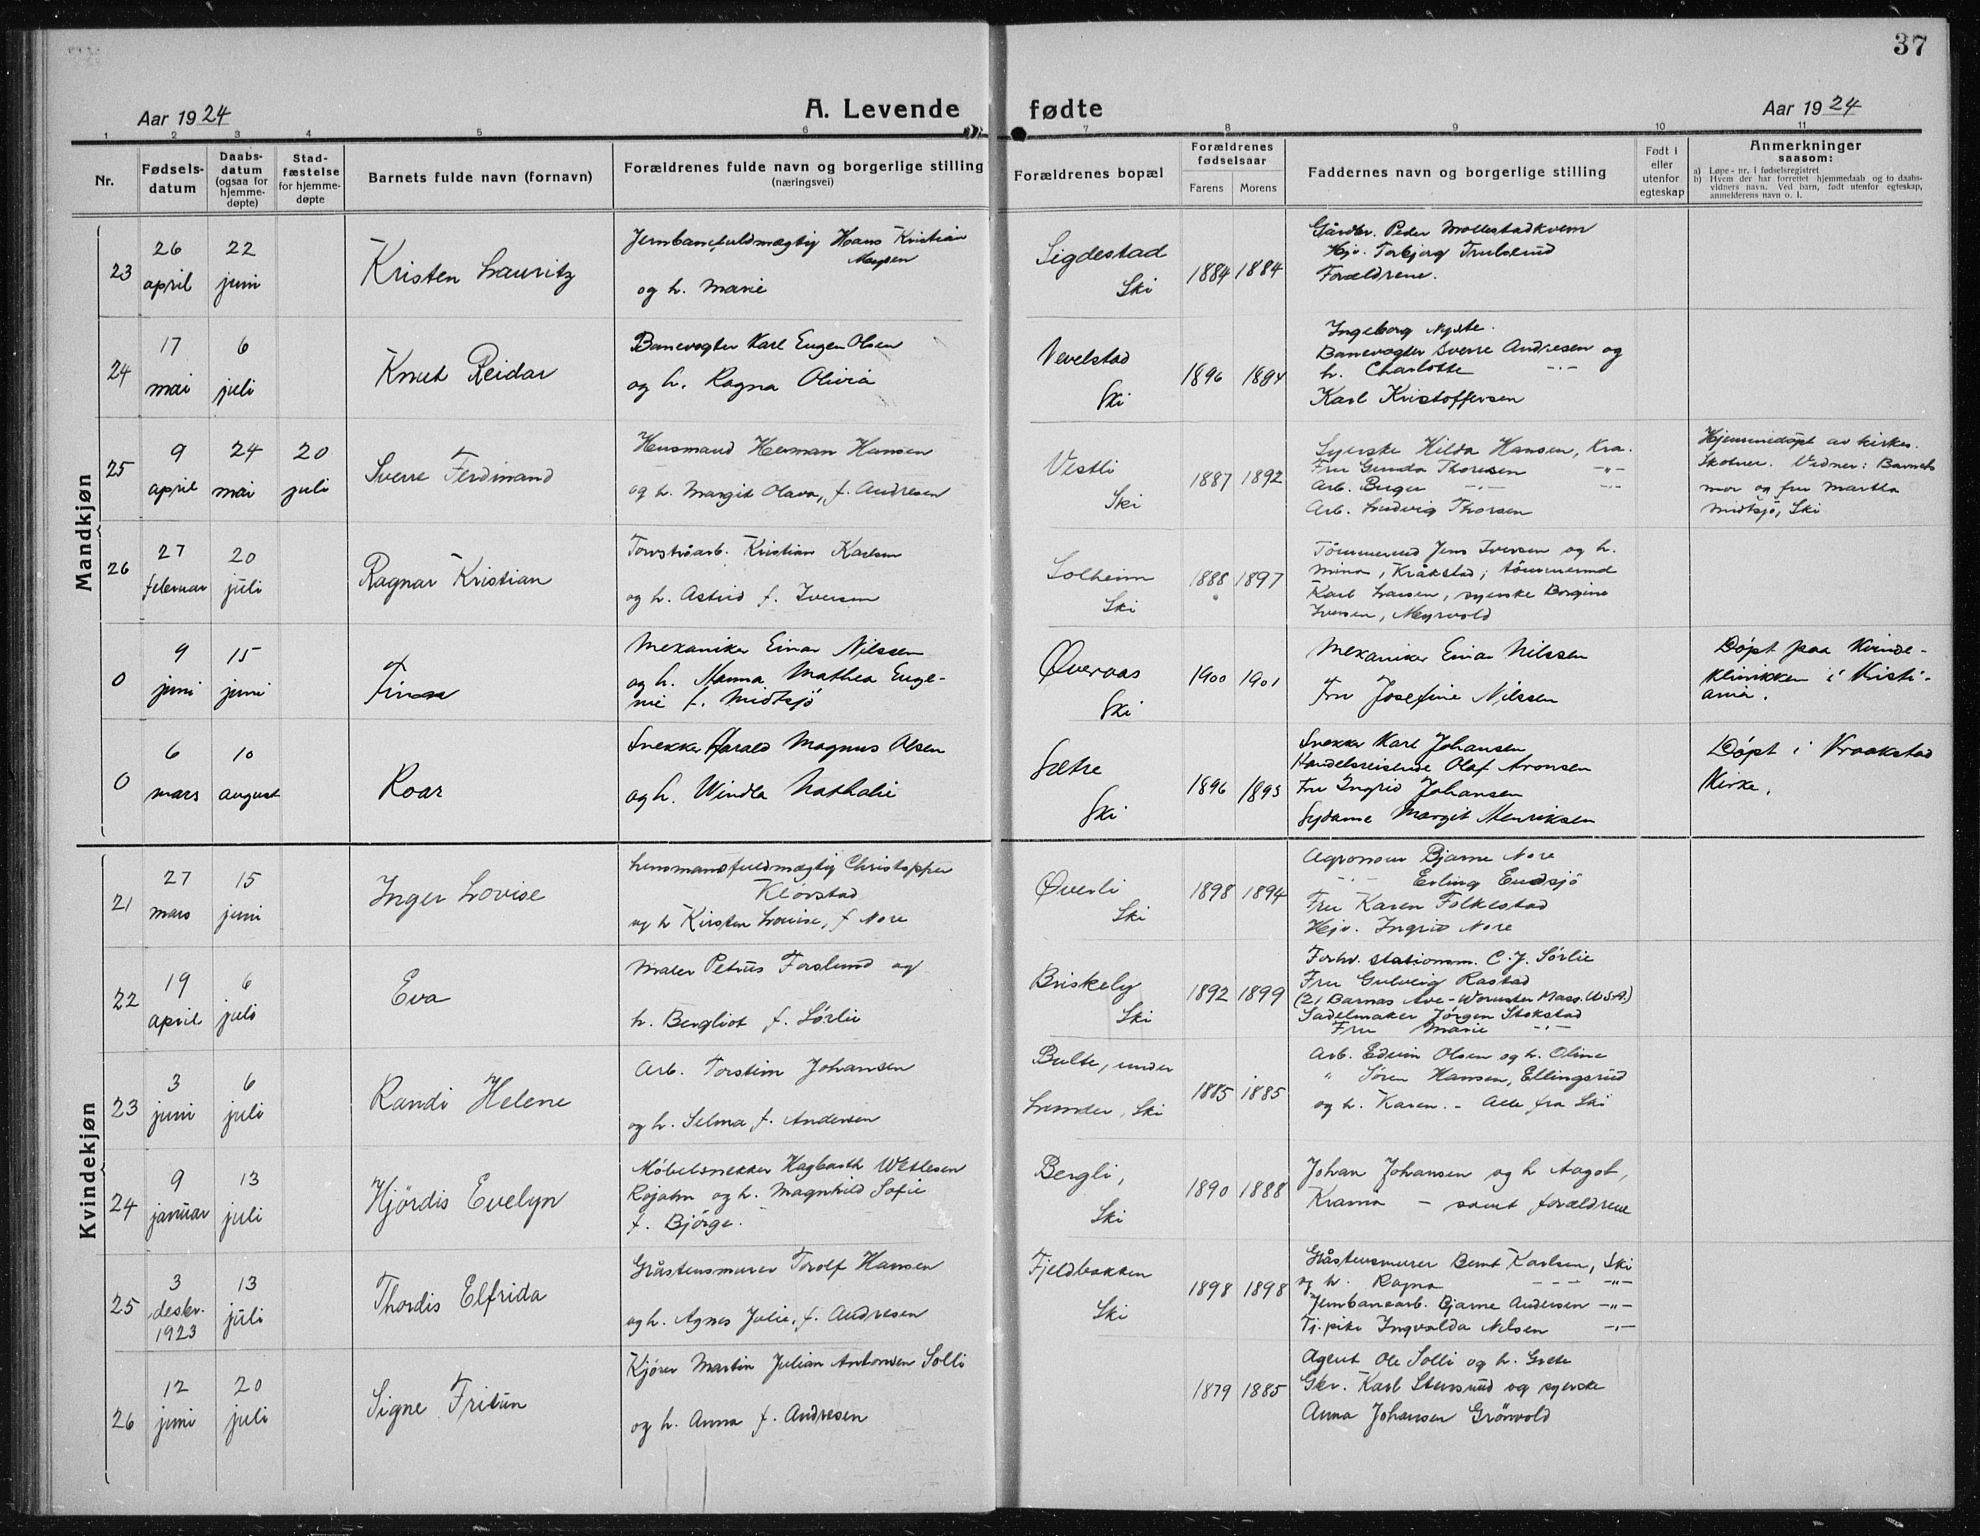 37
Aar 1924
A. Levende fødte
Aar 1924
1 2 3 4 5 6 7 8 9 10 11
Nr.
Fødsels-
datum
Daabs-
datum
(ogsaa for
hjemme-
døpte)
Stad-
fæstelse
for hjemme-
døpte
Barnets fulde navn (fornavn)
Forældrenes fulde navn og borgerlige stilling
(næringsvei)
Forældrenes bopæl
Forældrenes
fødselsaar
Farens Morens
Faddernes navn og borgerlige stilling
Født i
eller
utenfor
egteskap
Anmerkninger
saasom:
a) Løpe-nr. i fødselsregistret
b) Hvem der har forrettet hjemmedaab og to daabs-
vidners navn. Ved barn, født utenfor egteskap,
anmelderens navn o. l.
Mandkjøn
23
26
april
22
juni
Kristen Lauritz
Jernbanefuldmægtig Hans Kristian
Moysen
og h. Marie
Sigdestad
Ski
1884 1884
Gårdbr. Peder Mollestadkvern
Hjv. Torbjørg Trulserud
Forældrene.
24
17
mai
6
juli
Knut Reidar
Banevogter Karl Eugen Olsen
og h. Ragna Olivia
Vevelstad
Ski
1896 1894
Ingeborg
Banevogter Sverre Andresen og
h. Charlotte -"-
Karl Kristoffersen
25
9
april
24
mai
20
juli
Sverre Ferdinand
Husmand Herman Hansen
og h. Margit Olava, f. Andresen
Vestli
Ski
1887 1892
Syerske Hilda Hansen, Kra.
Fru Gunda Thoresen -"-
Arb. Birger -"- -"-
Arb. Ludvig Thorsen
Hjemmedøpt av kirkes.
Skotner. Vidner: Barnets
mor og fru Martha
Midtsjø, Ski
26
27
februar
20
juli
Ragnar Kristian
Torvstrøarb. Kristian Karlsen
og h. Astrid f. Iversen
Solheim
Ski
1888 1897
Tømmermd Jens Iversen og h.
Mina, Kråkstad; tømmermd
Karl Larsen, syerske Borgine
Iversen, Myrvold
0
9
juni
15
juni
Finn
Mekaniker Einar Nilssen
og h. Manna Mathea Euge-
nie f. Midtsjø
Øveraas
Ski
1900 1901
Mekaniker Einar Nilssen
Fru Josefine Nilssen
Døpt paa Kvinde-
klinikken i Kristi-
ania.
0
6
mars
10
august
Roar
Snekker Harald Magnus Olsen
og h. Windla Nathalie
Sætre
Ski
1896 1893
Snekker Karl Johansen
Handelsreisende Olaf Aronsen
Fru Ingrid Johansen
Sydame Margit Henriksen
Døpt i Kraakstad
Kirke.
Kvindekjøn
21
27
mars
15
juni
Inger Lovise
Lensmansfuldmægtig Christopher
Kløvstad
og h Kirsten Louise, f Nore
Øverli
Ski
1898 1894
Agronom Bjarne Nore
-"- Erling Endsjø
Fru Karen Folkestad
Hjv. Ingrid Nore
22
19
april
6
juli
Eva
Maler Petrus Forslund og
h. Bergliot f. Sørlie
Briskeby
Ski
1892 1899
Forhv. stationsm. C. J. Sørlie
Fru Gulveig Rastad
(21 Barnas Ave-Worcester Mass. U.S.A.)
Sadelmaker Jørgen Stokstad
Fru Marie -"-
23
3
juni
6
juli
Randi Helene
Arb. Torstein Johansen
og h. Selma f. Andersen
Bulte, under
Lunder, Ski
1885 1885
Arb. Edvin Olsen og h. Oline
" Søren Hansen, Ellingsrud
og h. Karen. - Alle fra Ski
24
9
januar
13
juli
Hjördis Evelyn
Møbelsnekker Hagbarth Wetlesen
Rojahn og h. Magnhild Sofie
f. Bjørge.
Bergli,
Ski
1890 1888
Johan Johansen og h Aagot,
Krania - samt forældrene
25
3
desbr.
1923
13
juli
Thordis Elfrida
Gråstensmurer Torolf Hansen
og h. Agnes Julie, f. Andresen
Fjeldbakken
Ski
1898 1898
Gråstensmurer Bernt Karlsen, Ski
og h. Ragna - - - -"-
Jernbanearb. Bjarne Andersen -"-
Tj.pike Ingvalda Nilsen -"-
26
12
juni
20
juli
Signe Fritun
Kjører Martin Julian Antonsen Solli
og h. Anna f. Andresen
1879 1885
Agent Ole Solli og h. Grete
Gbr. Karl Stensrud og syerske
Anna Johansen Grönvold